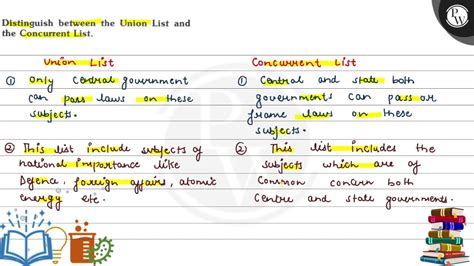 Distinguish between the Union List and
the Concurrent List.
PW
Union List
① Only Central government
can pass laws on these
subjects.
② This list include subjects of
national importance like
Defence, foreign affairs, atomic
energy etc.
Concurrent List
① Central and state both
governments can pass or
frame laws on these
subjects.
② This list includes the
subjects which are of
Common concern both
Centre and state governments.